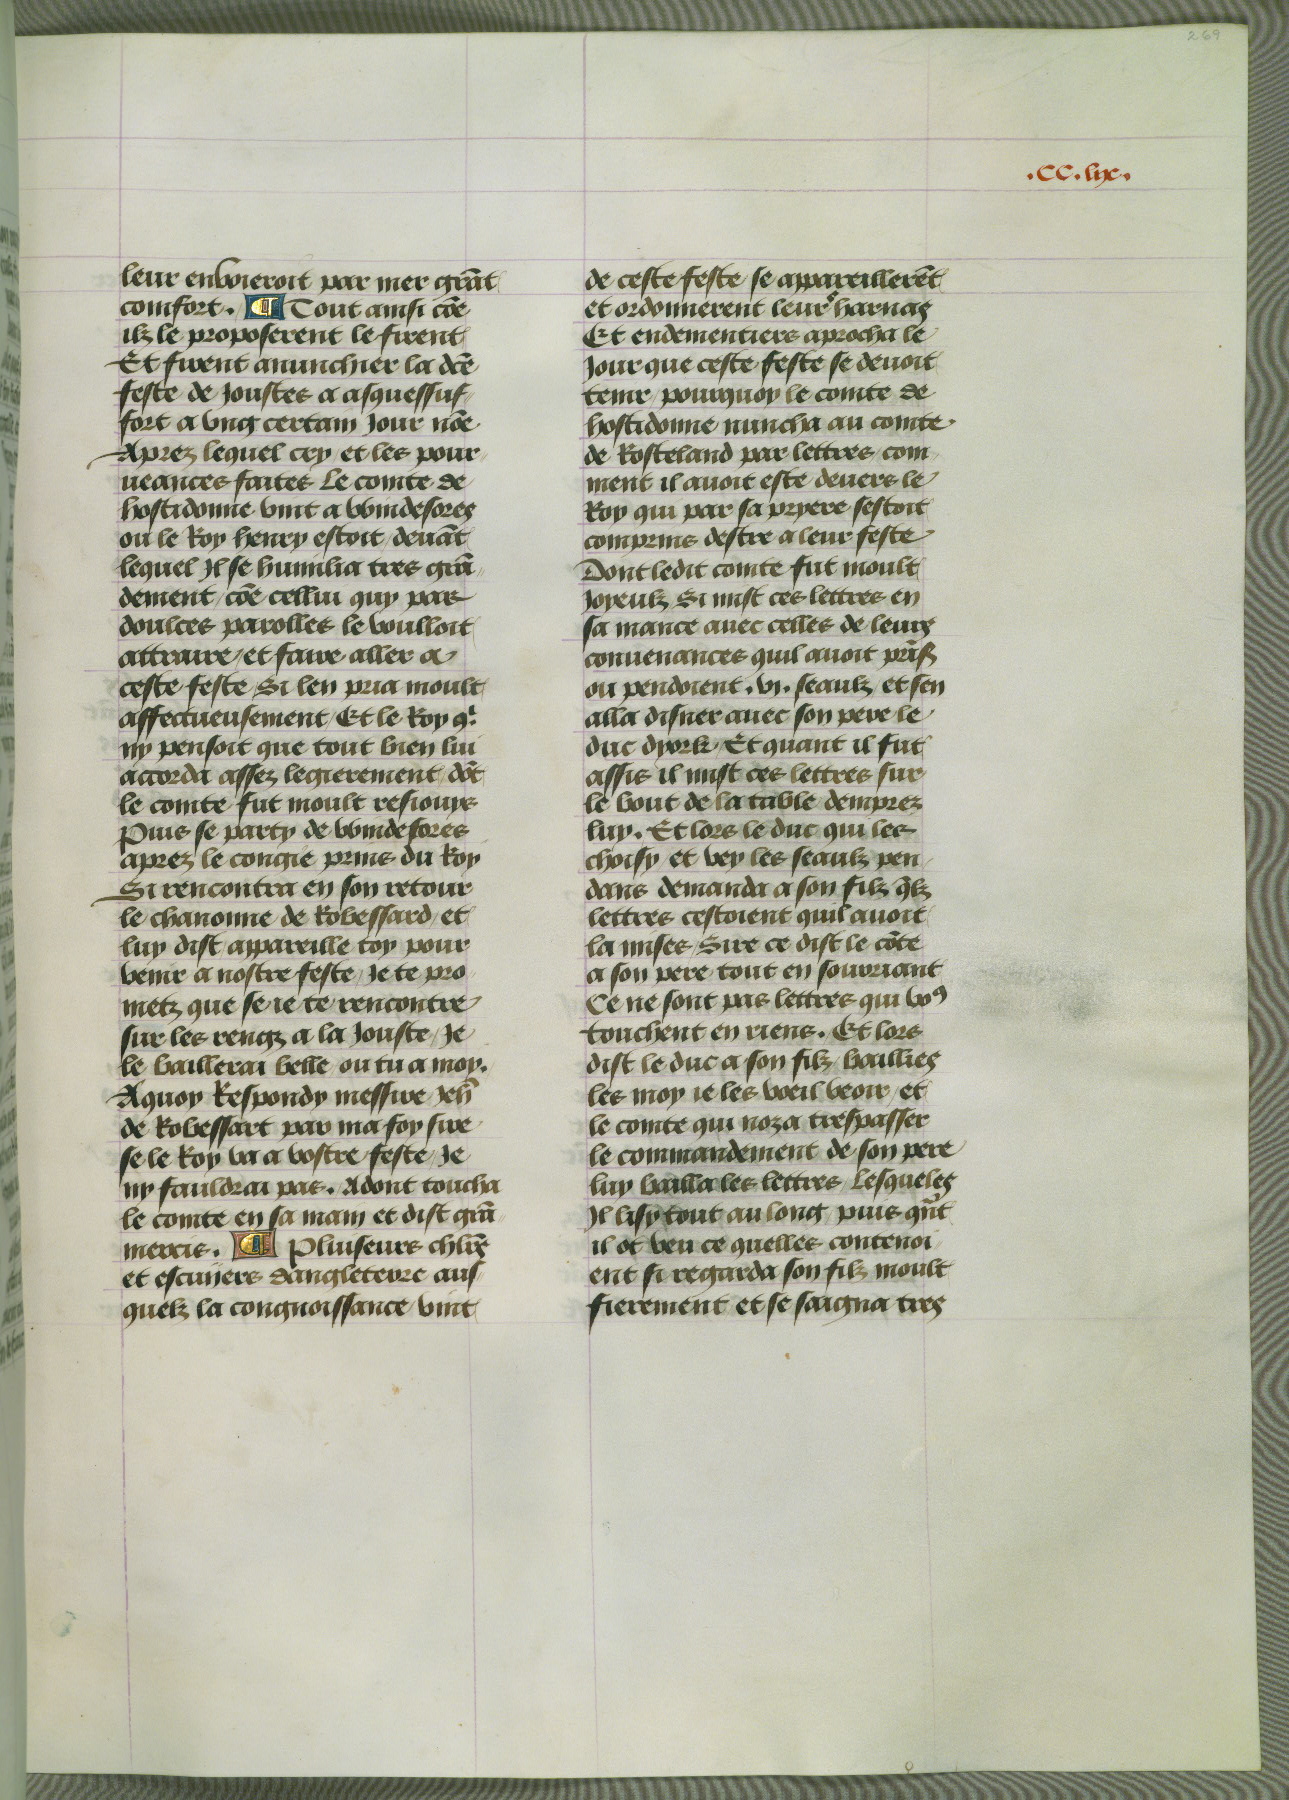 269
.CC.lix.
leur envoieroit par mer grãt
comfort. ¶ Tout ainsi cõe
ilz le proposerent le firent
Et firent anunchier la dẽe
feste de Joustes a asquessuf-
fort a ung certain Jour nõe
Aprez lequel cry et les pour-
ueances faites Le comte de
hostidonne vint a windesores
ou le Roy henry estoit deuãt
lequel Jl se humilia tres grã-
dement cõe cellui quy par
doulces parolles le voulloit
attraire et faire aller a
ceste feste Si len pria moult
affectueusement Et le Roy qͥ
ny pensoit que tout bien lui
accorda assez legierement dõt
le comte fut moult resiouys
Puis se party de windesores
aprez le congie prins du Roy
Si rencontra en son retour
le chanonne de Robessard et
luy dist appareille toy pour
venir a nostre feste Je te pro-
metz que se ie te rencontre
sur les rengz a la Jouste Je
le baillerai belle ou tu a moy.
Aquoy Respondy messire Jeħ
de Robessart par ma foy sire
se le Roy va a vostre feste Je
ny fauldrai pas. Adont toucha
le comte en sa main et dist grã-
mercis. ¶ Pluiseurs chlr̃s
et escuyers dangleterre aus-
quelz la congnoissance vint
de ceste feste se appareillerẽt
et ordonnerent leurˢ harnas
Et endementiers aprocha le
Jour que ceste feste se deuoit
tenir pourquoy le comte de
hostidonne nuncha au comte
de Rosteland par lettres com-
ment il auoit este deuers le
Roy qui par sa pryere sestoit
comprins destre a leur feste
Dont ledit comte fut moult
Joyeulz Si mist ces lettres en
sa mance auec celles de leurs
conuenances quil auoit prĩs
ou pendoient .vi. seaulz et sen
alla disner auec son pere le
duc dyork Et quant il fut
assis il mist ces lettres sur
le bout de la table demprez
luy. Et lors le duc qui les
choisy et vey les seaulz pen-
dans demanda a son filz q̃lz
lettres cestoient quil auoit
la mises Sire ce dist le cõte
a son pere tout en sourriant
Ce ne sont pas lettres qui voꝰ
touchent en riens. Et lors
dist le duc a son filz baillies
les moy ie les voeil veoir et
le comte qui noza trespasser
le commandement de son pere
luy bailla les lettres Lesqueles
Jl lisy tout au long puis qñt
il ot veu ce quelles contenoi-
ent si regarda son filz moult
fierement et se saigna tres